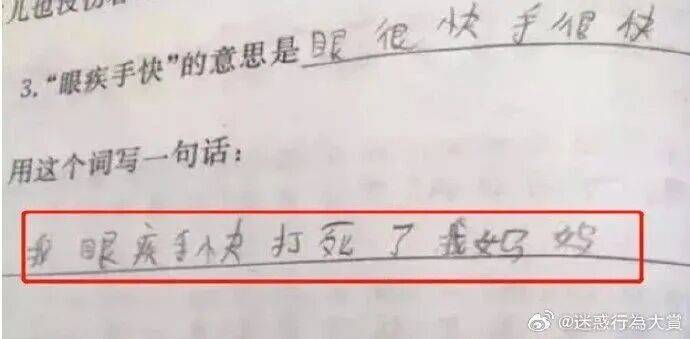 儿也没
3.“眼疾手快”的意思是眼很快手很快
用这个词写一句话：
我眼疾手快打死了我妈妈
@迷惑行為大賞